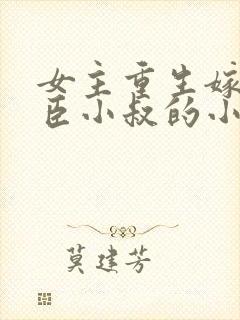 女主重生嫁
臣小叔的小
莫建芳